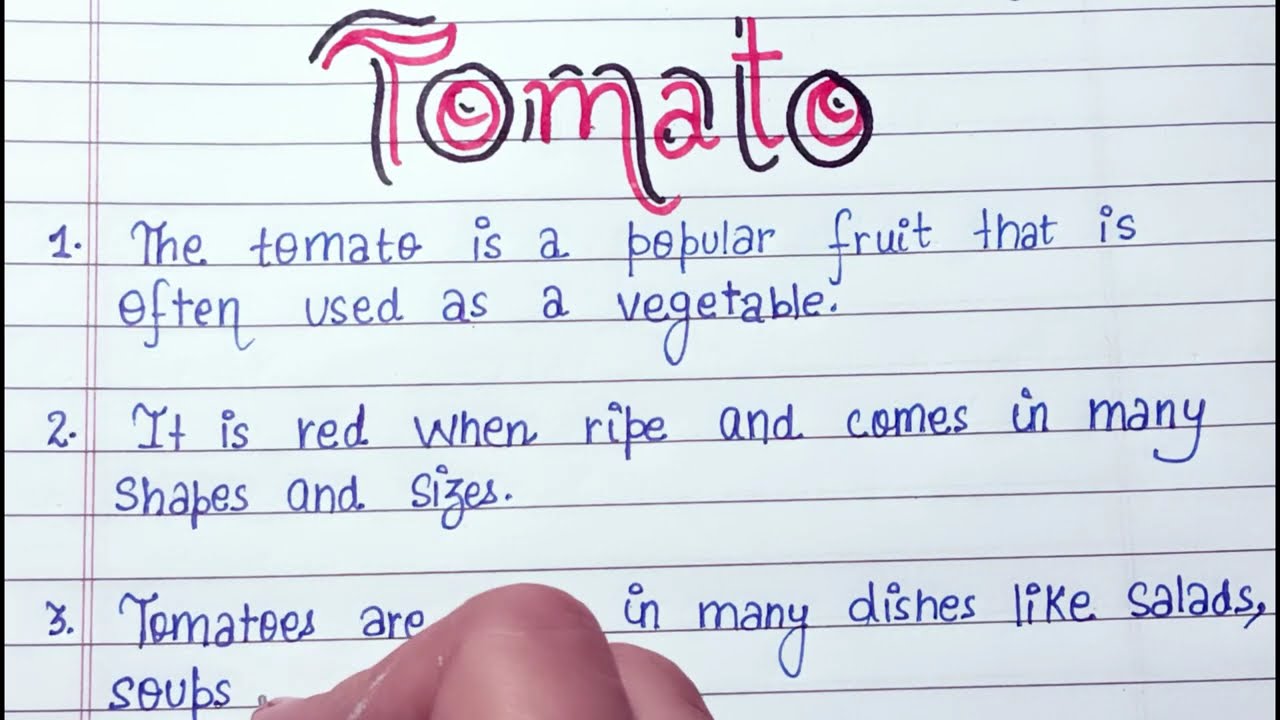 Tomato
1. The tomato is a popular fruit that is
often used as a vegetable.
2. It is red when ripe and comes in many
shapes and sizes.
3. Tomatoes are in many dishes like salads,
soups